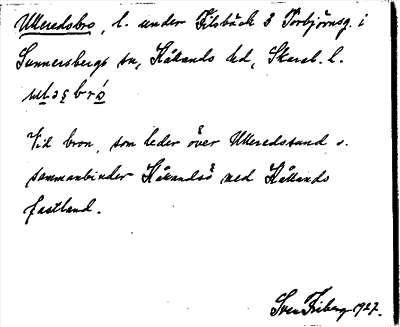 Ulleredsbro, l. under Filsbäck 3 Torbjörnsg. i
Sunnersbergs sn, Kållands hd, Skarab. l.
Vid bron, som leder över Ulleredssund o.
sammanbinder Kållandsö med Kållands
fastland.
Sven Friberg 1927.